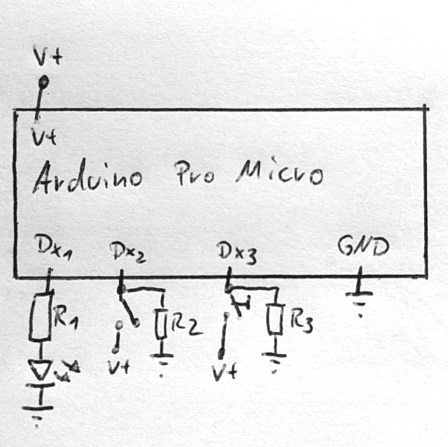 V+
V+
Arduino Pro Micro
Dx1 Dx2 Dx3 GND
R1 R2 R3
V+ V+